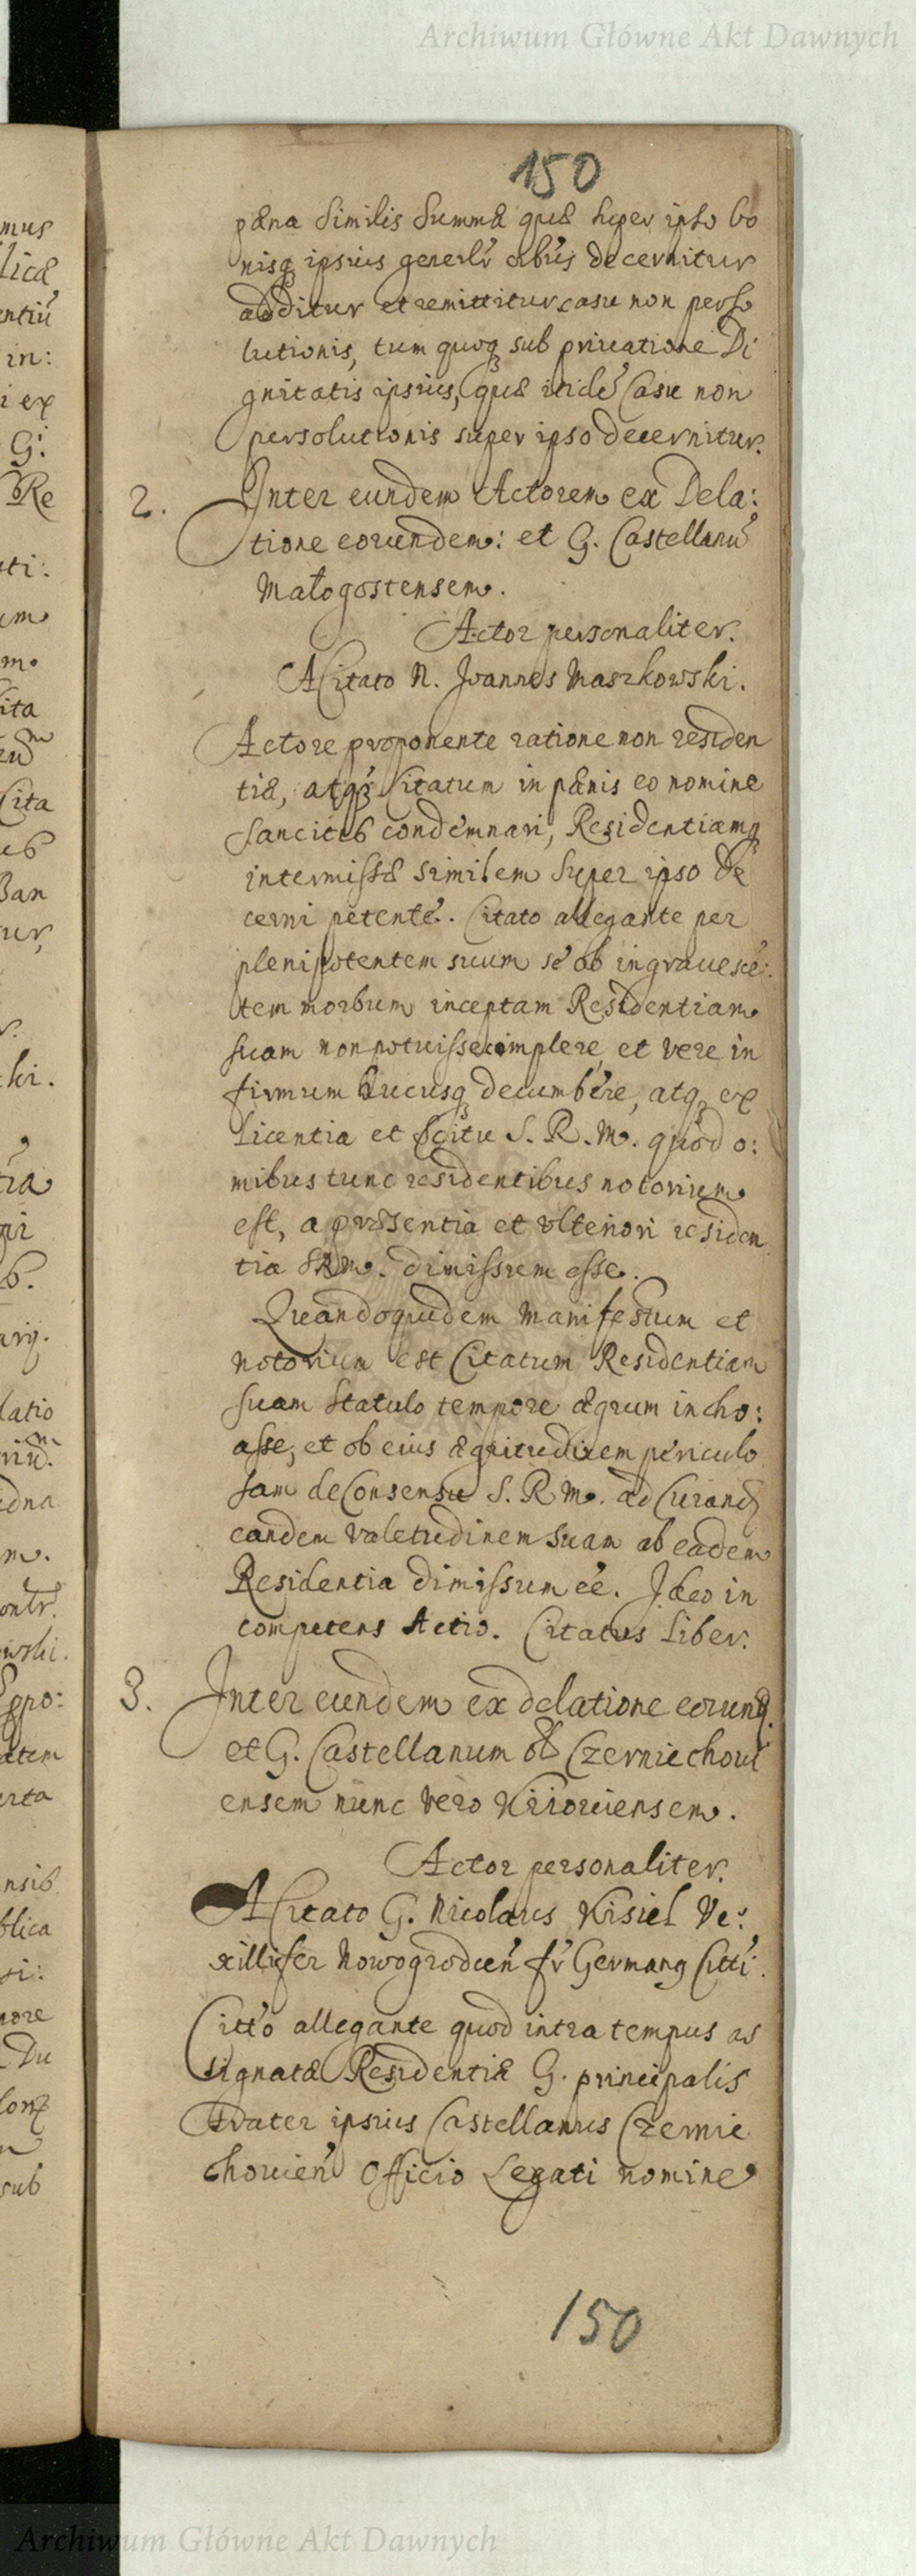 Archiwum Główne Akt Dawnych
150
pæna similis summæ quæ super ipso bo
nisq ipsius generlr oibus decernitur
additur et remittitur casu non perso
lutionis, tum quoq sub priuatione Di
gnitatis ipsius, quæ itide Casu non
persolutionis super ipso decernitur.
2. Inter eundem Actorem ex Dela:
tione eorundem: et G. Castellanu
Małogostensem.
Actor personaliter.
A Citato N. Joannes Maszkowski.
Actore proponente ratione non residen
tiæ, atq Citatum in pænis eo nomine
sancitis condemnari, Residentiamq
intermissæ similem super ipso de
cerni petente. Citato allegante per
plenipotentem suum se ob ingrauesce:
tem morbum inceptam Residentiam
suam non potuisse complere et vere in
firmum hucusq decumbere, atq ex
Licentia et scitu S. R. M. quod o:
mibus tunc residentibus notorium
est, a præsentia et vlteriori residen
tia SRM. dimissum esse.
Quandoquidem manifestum et
notorium est Citatum Residentiam
suam statuto tempore ægrum incho:
asse, et ob eius ægritudinem periculo
sam de Consensu S. R. M. ad Curand
eandem valetudinem suam ab eadem
Residentia dimissum ee. Ideo in
competens Actio. Citatus Liber.
3. Inter eundem ex delatione eorund.
et G. Castellanum ol Czerniechoui
ensem nunc vero Kiiouiensem.
Actor personaliter.
A Citato G. Nicolaus Kisiel Ve:
xillifer Nowogrodcen fr Germang Citti.
Citto allegante quod intra tempus as
signatæ Residentiæ G. principalis
Frater ipsius Castellanus Czernie
chouien Officio Legati nomine
150
Archiwum Główne Akt Dawnych